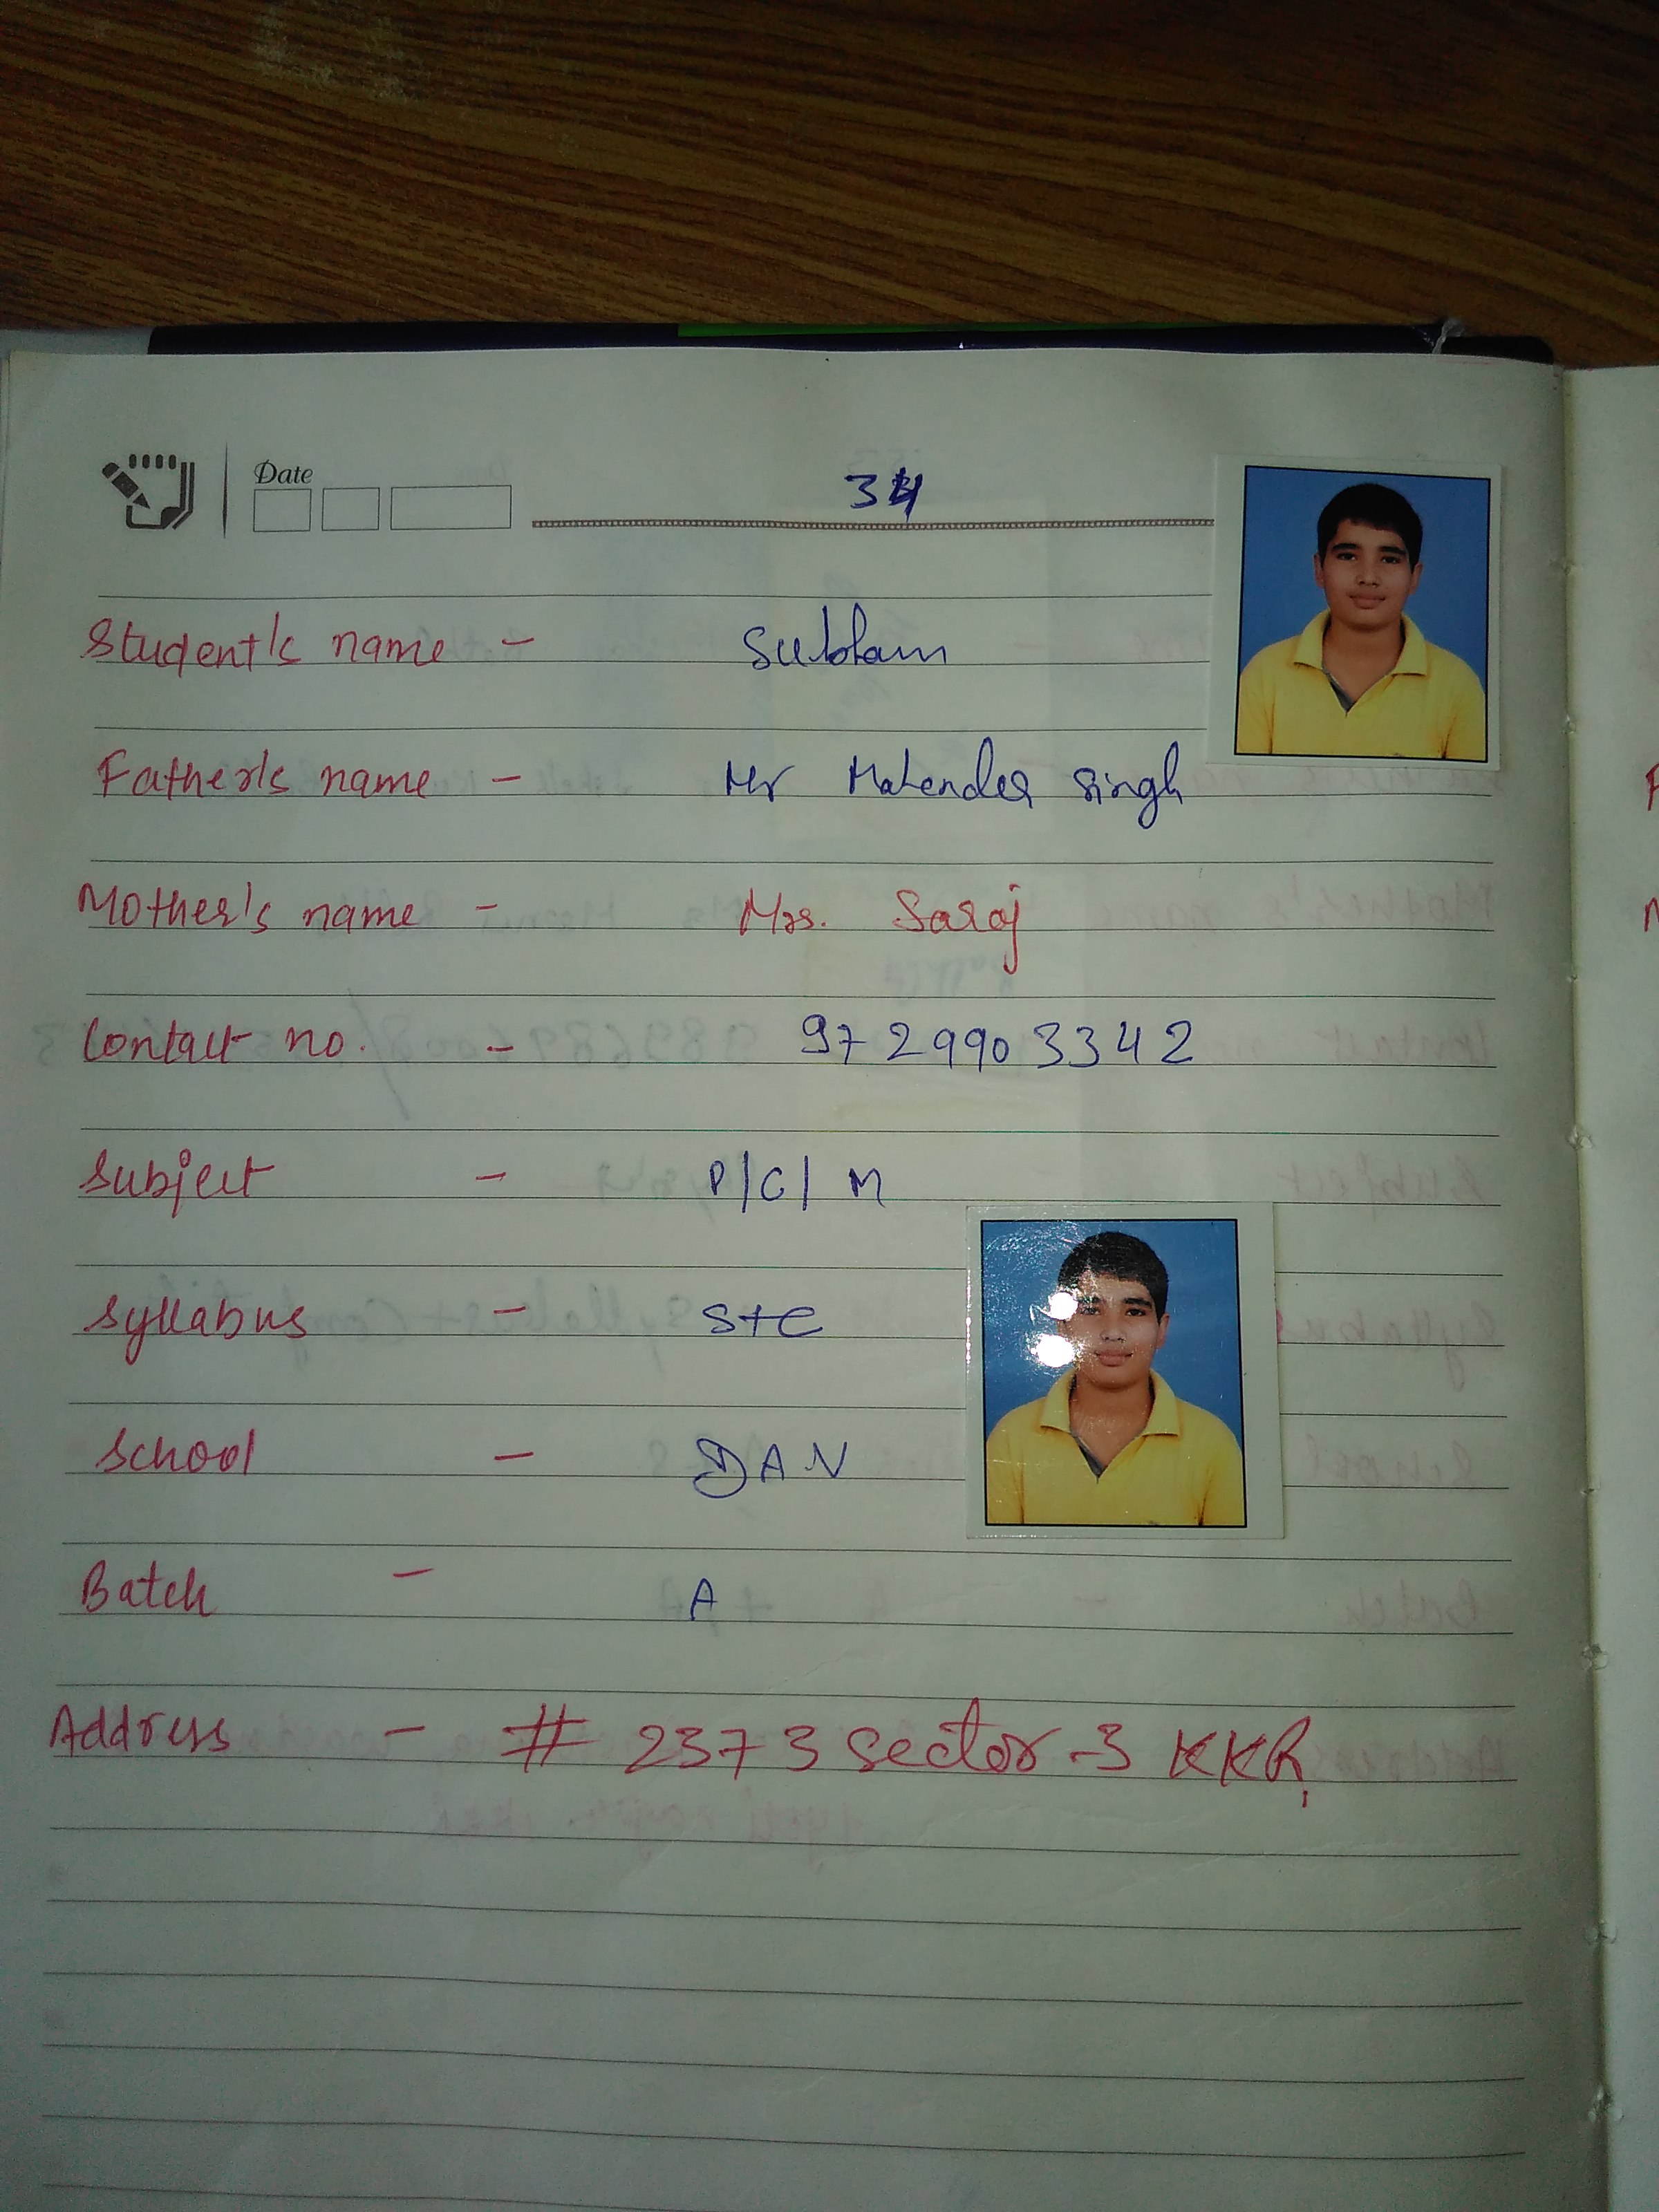 Date
34
Student's name - Subham
Father's name - Mr Mahender Singh
Mother's name - Mrs. Saroj
Contact no. - 9729903342
Subject - P/C/M
Syllabus - S+C
School - DAV
Batch - A
Address - # 2373 Sector-3 KKR,